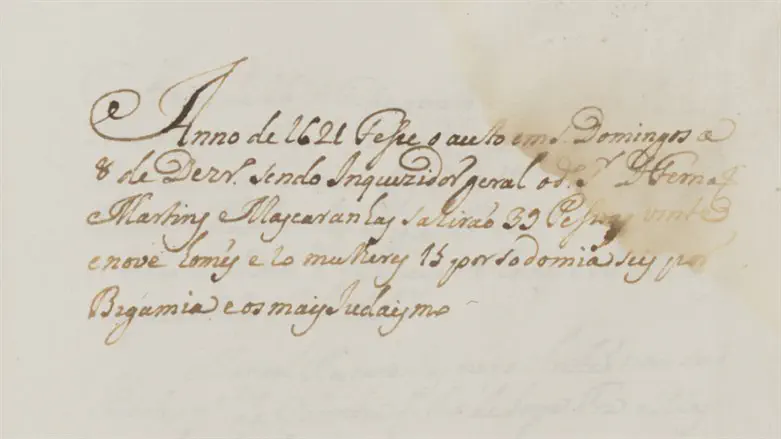 Anno de 1621 Fesse o auto em S. Domingos a
8 de Dezr. sendo Inquizidor geral o d. Sr. D Fernaõ
Martins Mascaranhas sahiraõ 39 Pessoas vinte
e nove homẽs e 10 mulheres 15 por sodomia seis por
Bigamia e os mais Judaysmo